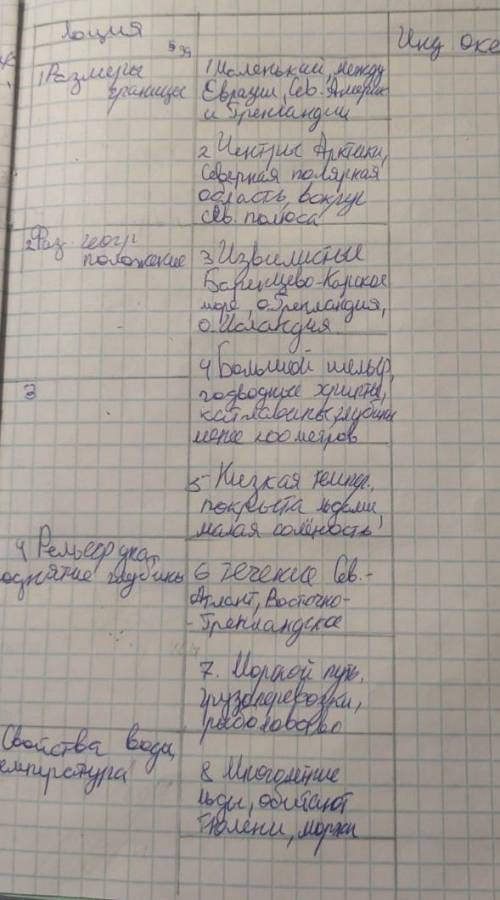 Лоция
§ 39
Инд оке
1 Размеры
границы
1 Маленький, между
Евразии, Сев. Америк
и Гренландии
2 Центры Арктики,
Северная полярная
область, вокруг
Сев. полюса
2 Физ. геогр
положение
3 Извилистые
Баренцево-Карское
море, о. Гренландия,
о. Исландия
3
4 Большой шельф,
подводные хрипты,
котлавины, глубины
менее 100 метров
5 Низкая темпер.,
покрыта льдами,
малая солёность
4 Рельеф дна,
поднятие глубины
6 Течение Сев.-
Атлант, Восточно-
-Гренландское
7. Морской путь,
грузоперевозки,
рыболовство
Свойства воды,
емпиратура
8 Многолетние
льды, обитают
Тюлени, моржи